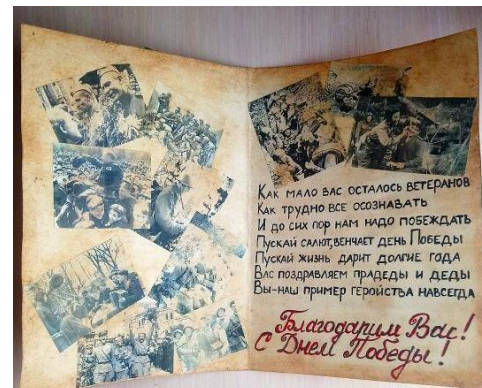 Как мало вас осталось ветеранов
Как трудно все осознавать
И до сих пор нам надо побеждать
Пускай салют, венчает день Победы
Пускай жизнь дарит долгие года
Вас поздравляем прадеды и деды
Вы-наш пример геройства навсегда
Благодарим Вас!
С Днем Победы!